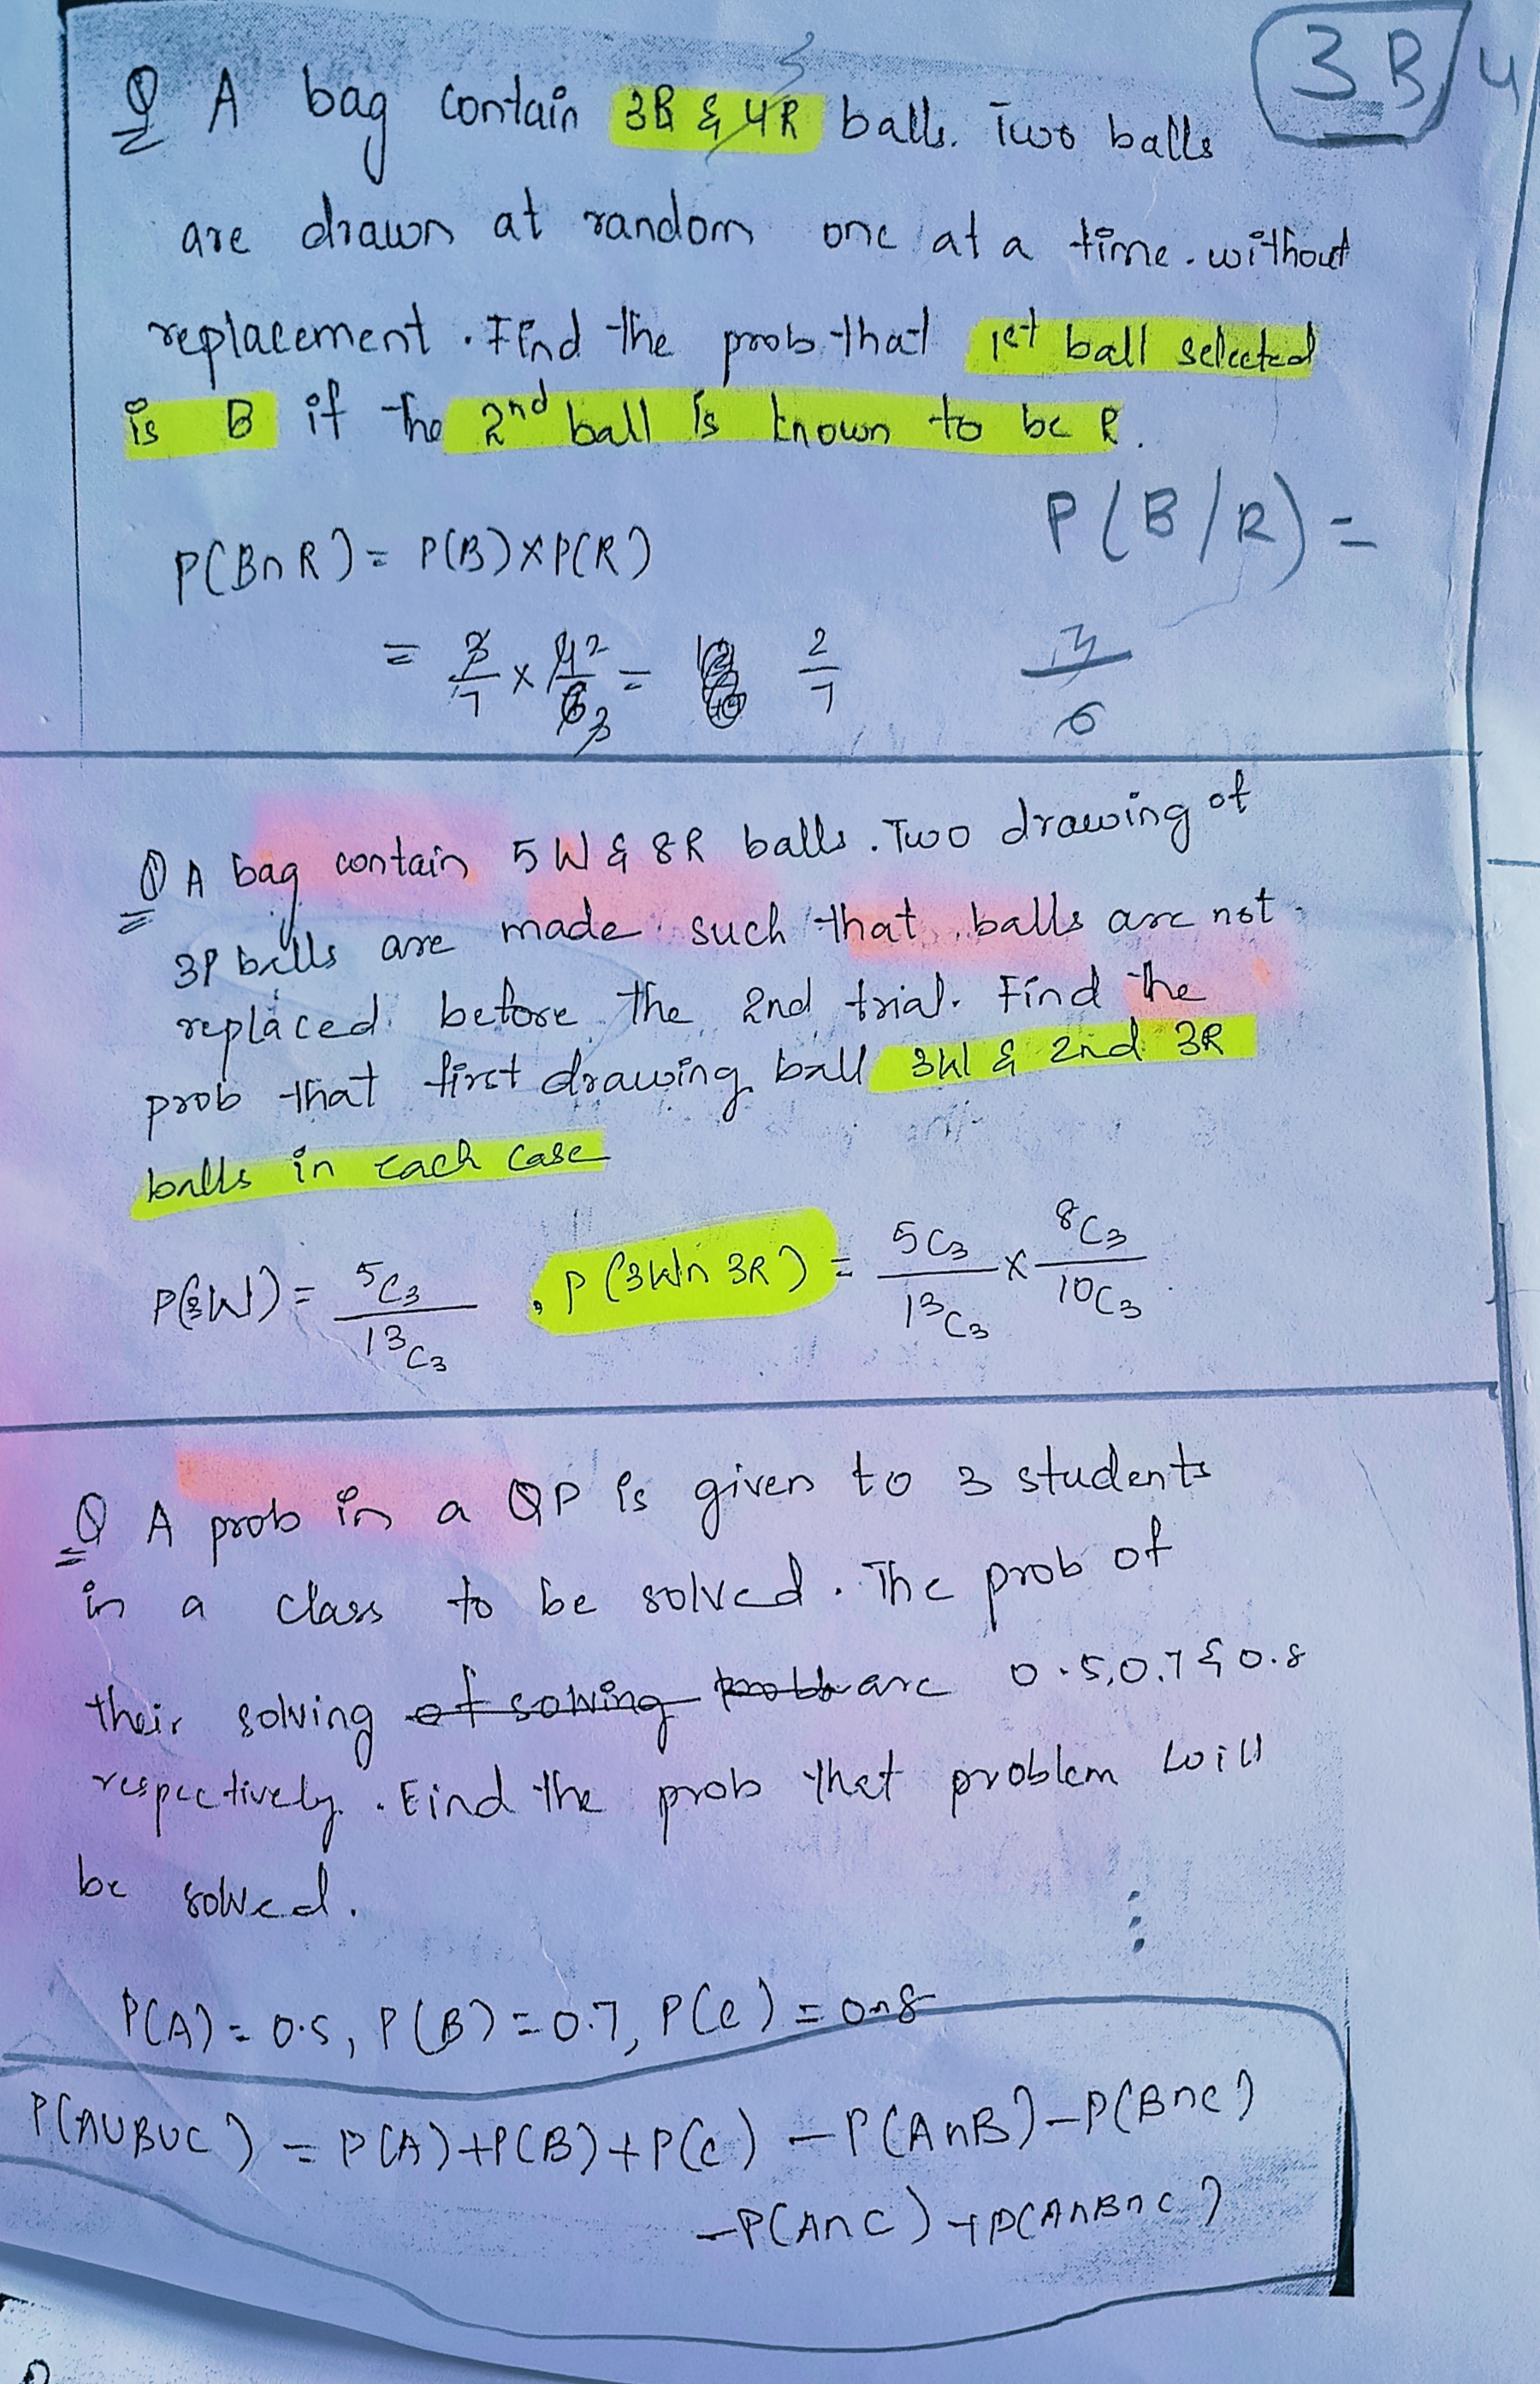 3B/4
Q A bag contain 3B & 4R balls. Two balls
are drawn at random one at a time. without
replacement. Find the prob. that 1st ball selected
is B if the 2nd ball is known to be R.
P(B/R) =
P(B∩R) = P(B) X P(R)
= 3/7 x 4 2/6 3 = 2/7
3/6
Q A bag contain 5W & 8R balls. Two drawing of
3P balls are made such that balls are not
replaced before the 2nd trial. Find the
prob that first drawing ball 3W & 2nd 3R
balls in each case
P(3W) = 5C3/13C3, P(3W∩3R) = 5C3/13C3 x 8C3/10C3
Q A prob in a QP is given to 3 students
in a class to be solved. The prob of
their solving of solving prob are 0.5, 0.7 & 0.8
respectively. Find the prob that problem will
be solved.
P(A) = 0.5, P(B) = 0.7, P(C) = 0.8
P(AUBUC) = P(A)+P(B)+P(C) - P(A∩B) - P(B∩C)
- P(A∩C) + P(A∩B∩C)